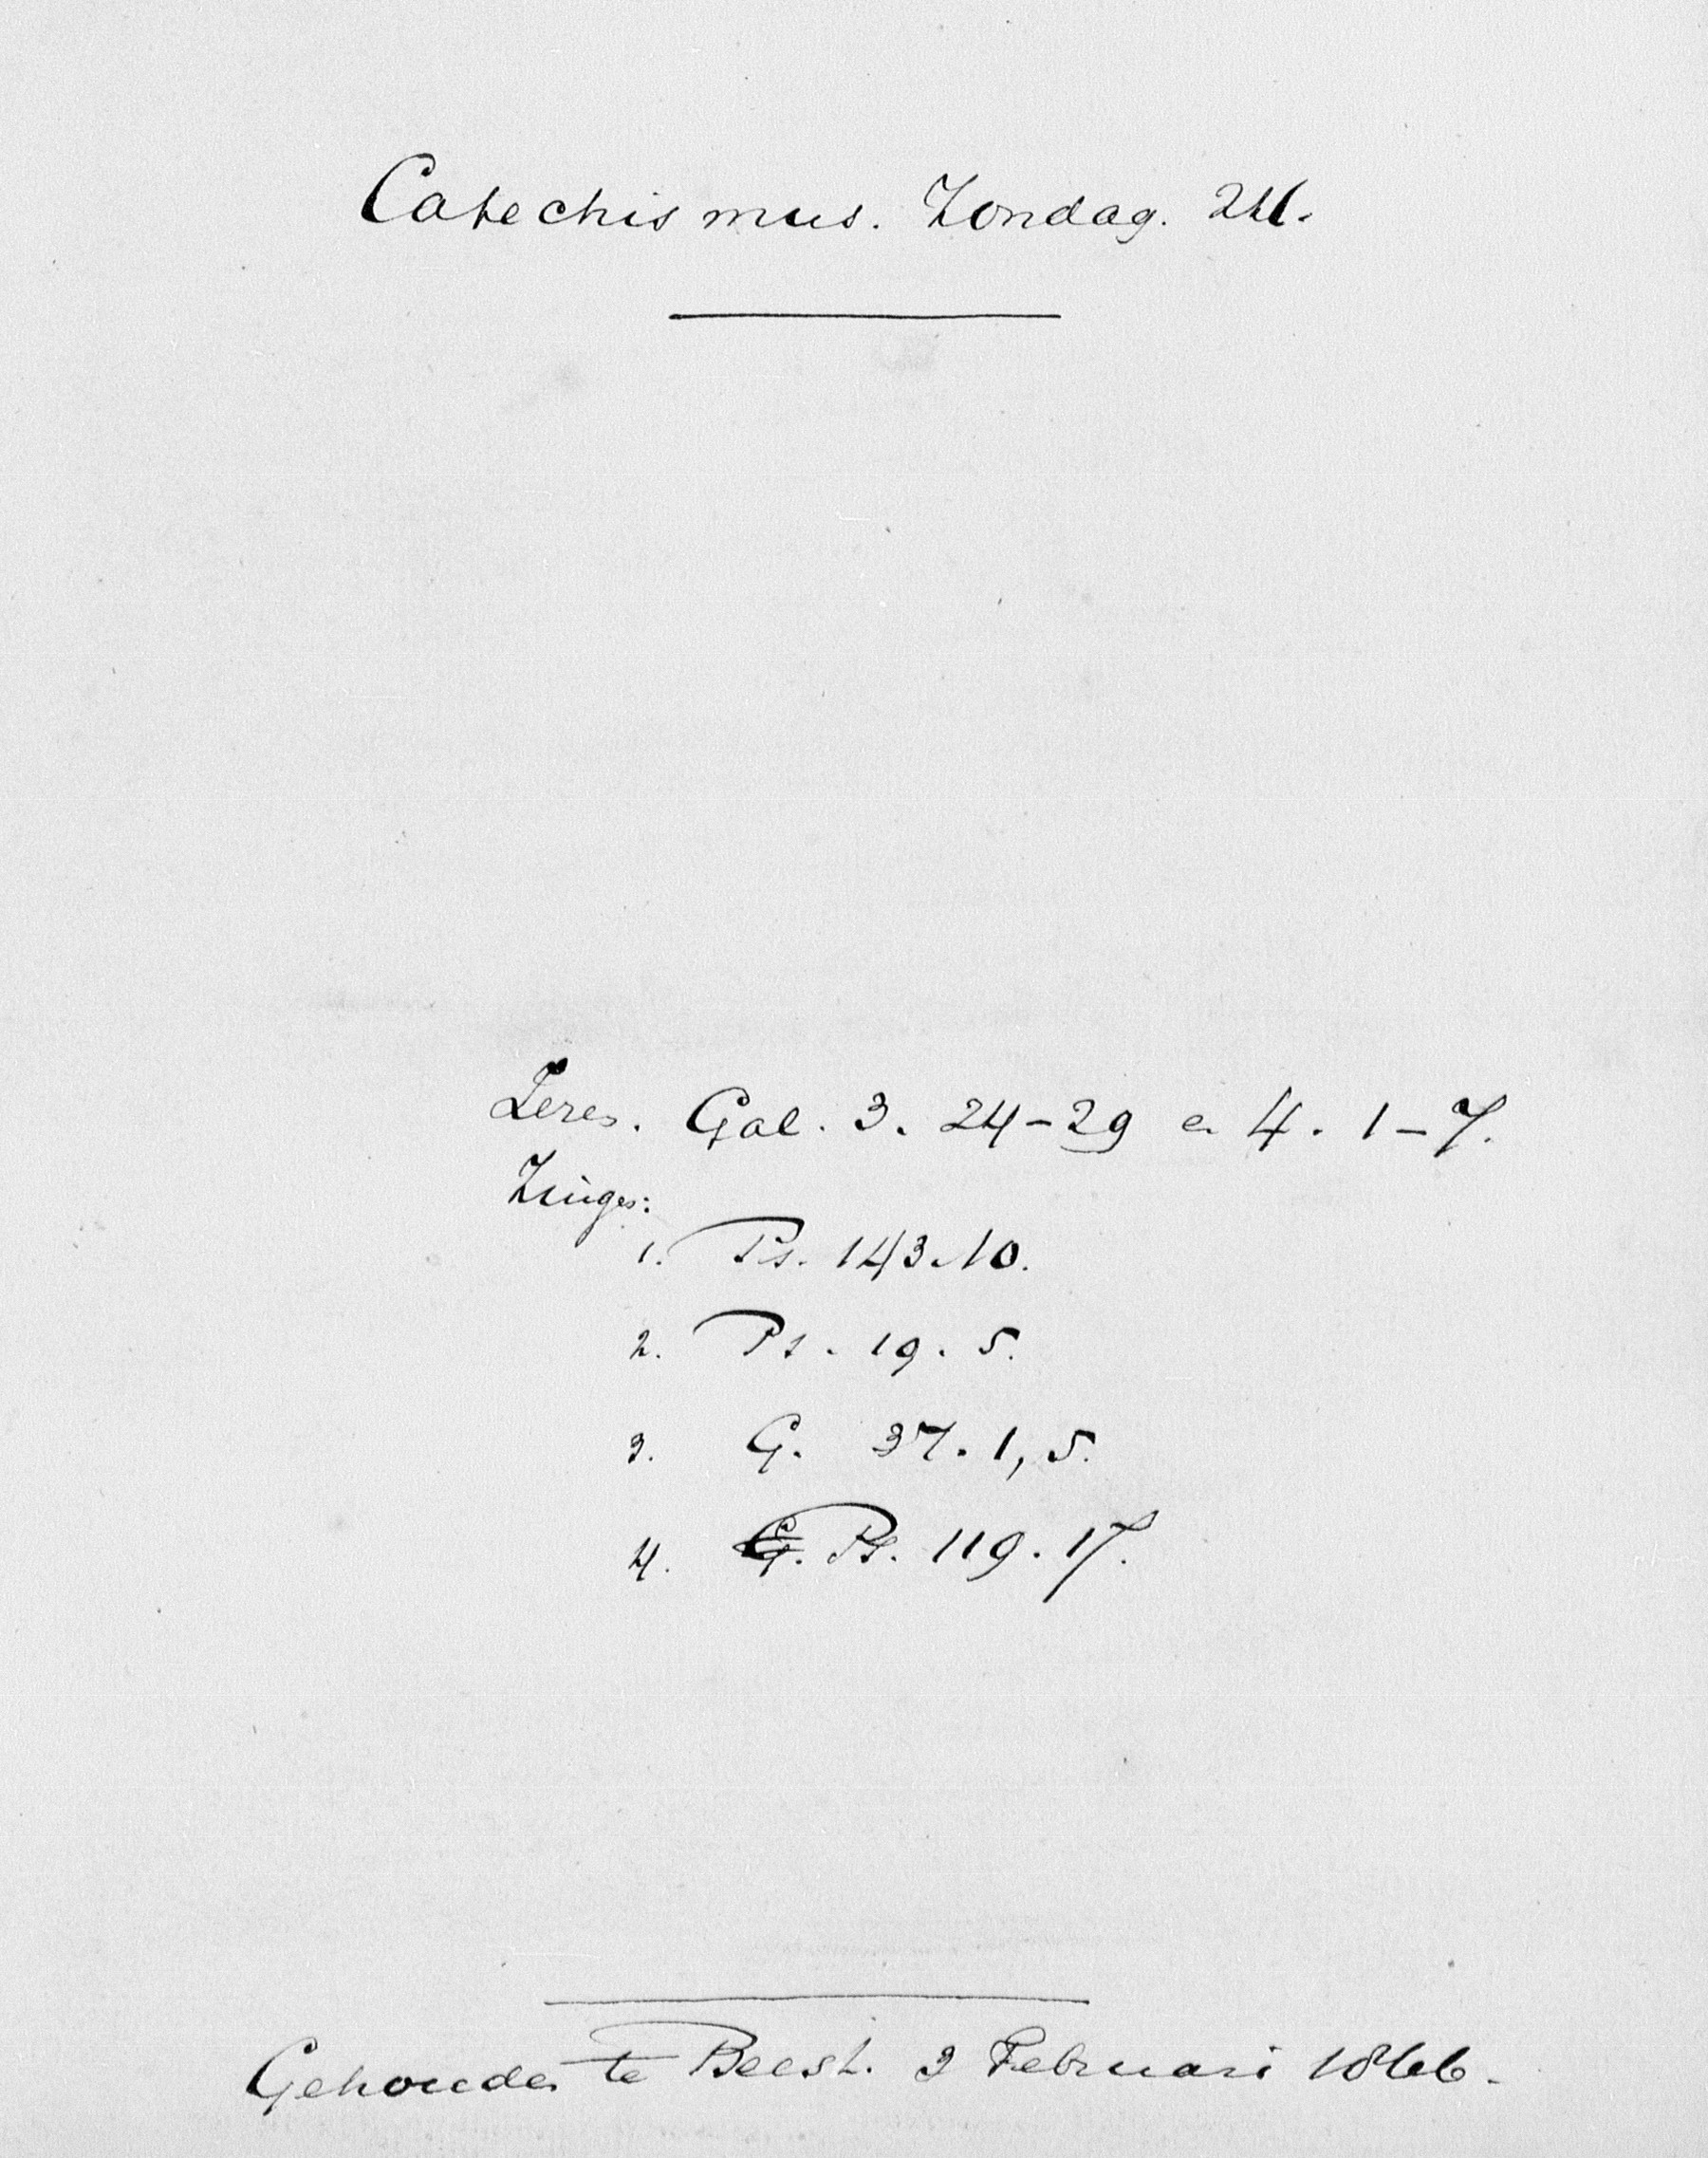 Catechismus. Zondag. 24.
Lezen. Gal. 3. 24-29 en 4. 1-7.
Zingen:
1. Ps. 143.10.
2. Ps. 19. 5.
3. G. 37. 1, 5.
4. G. Ps. 119. 17.
Gehouden te Beest. 2 Februari 1866.